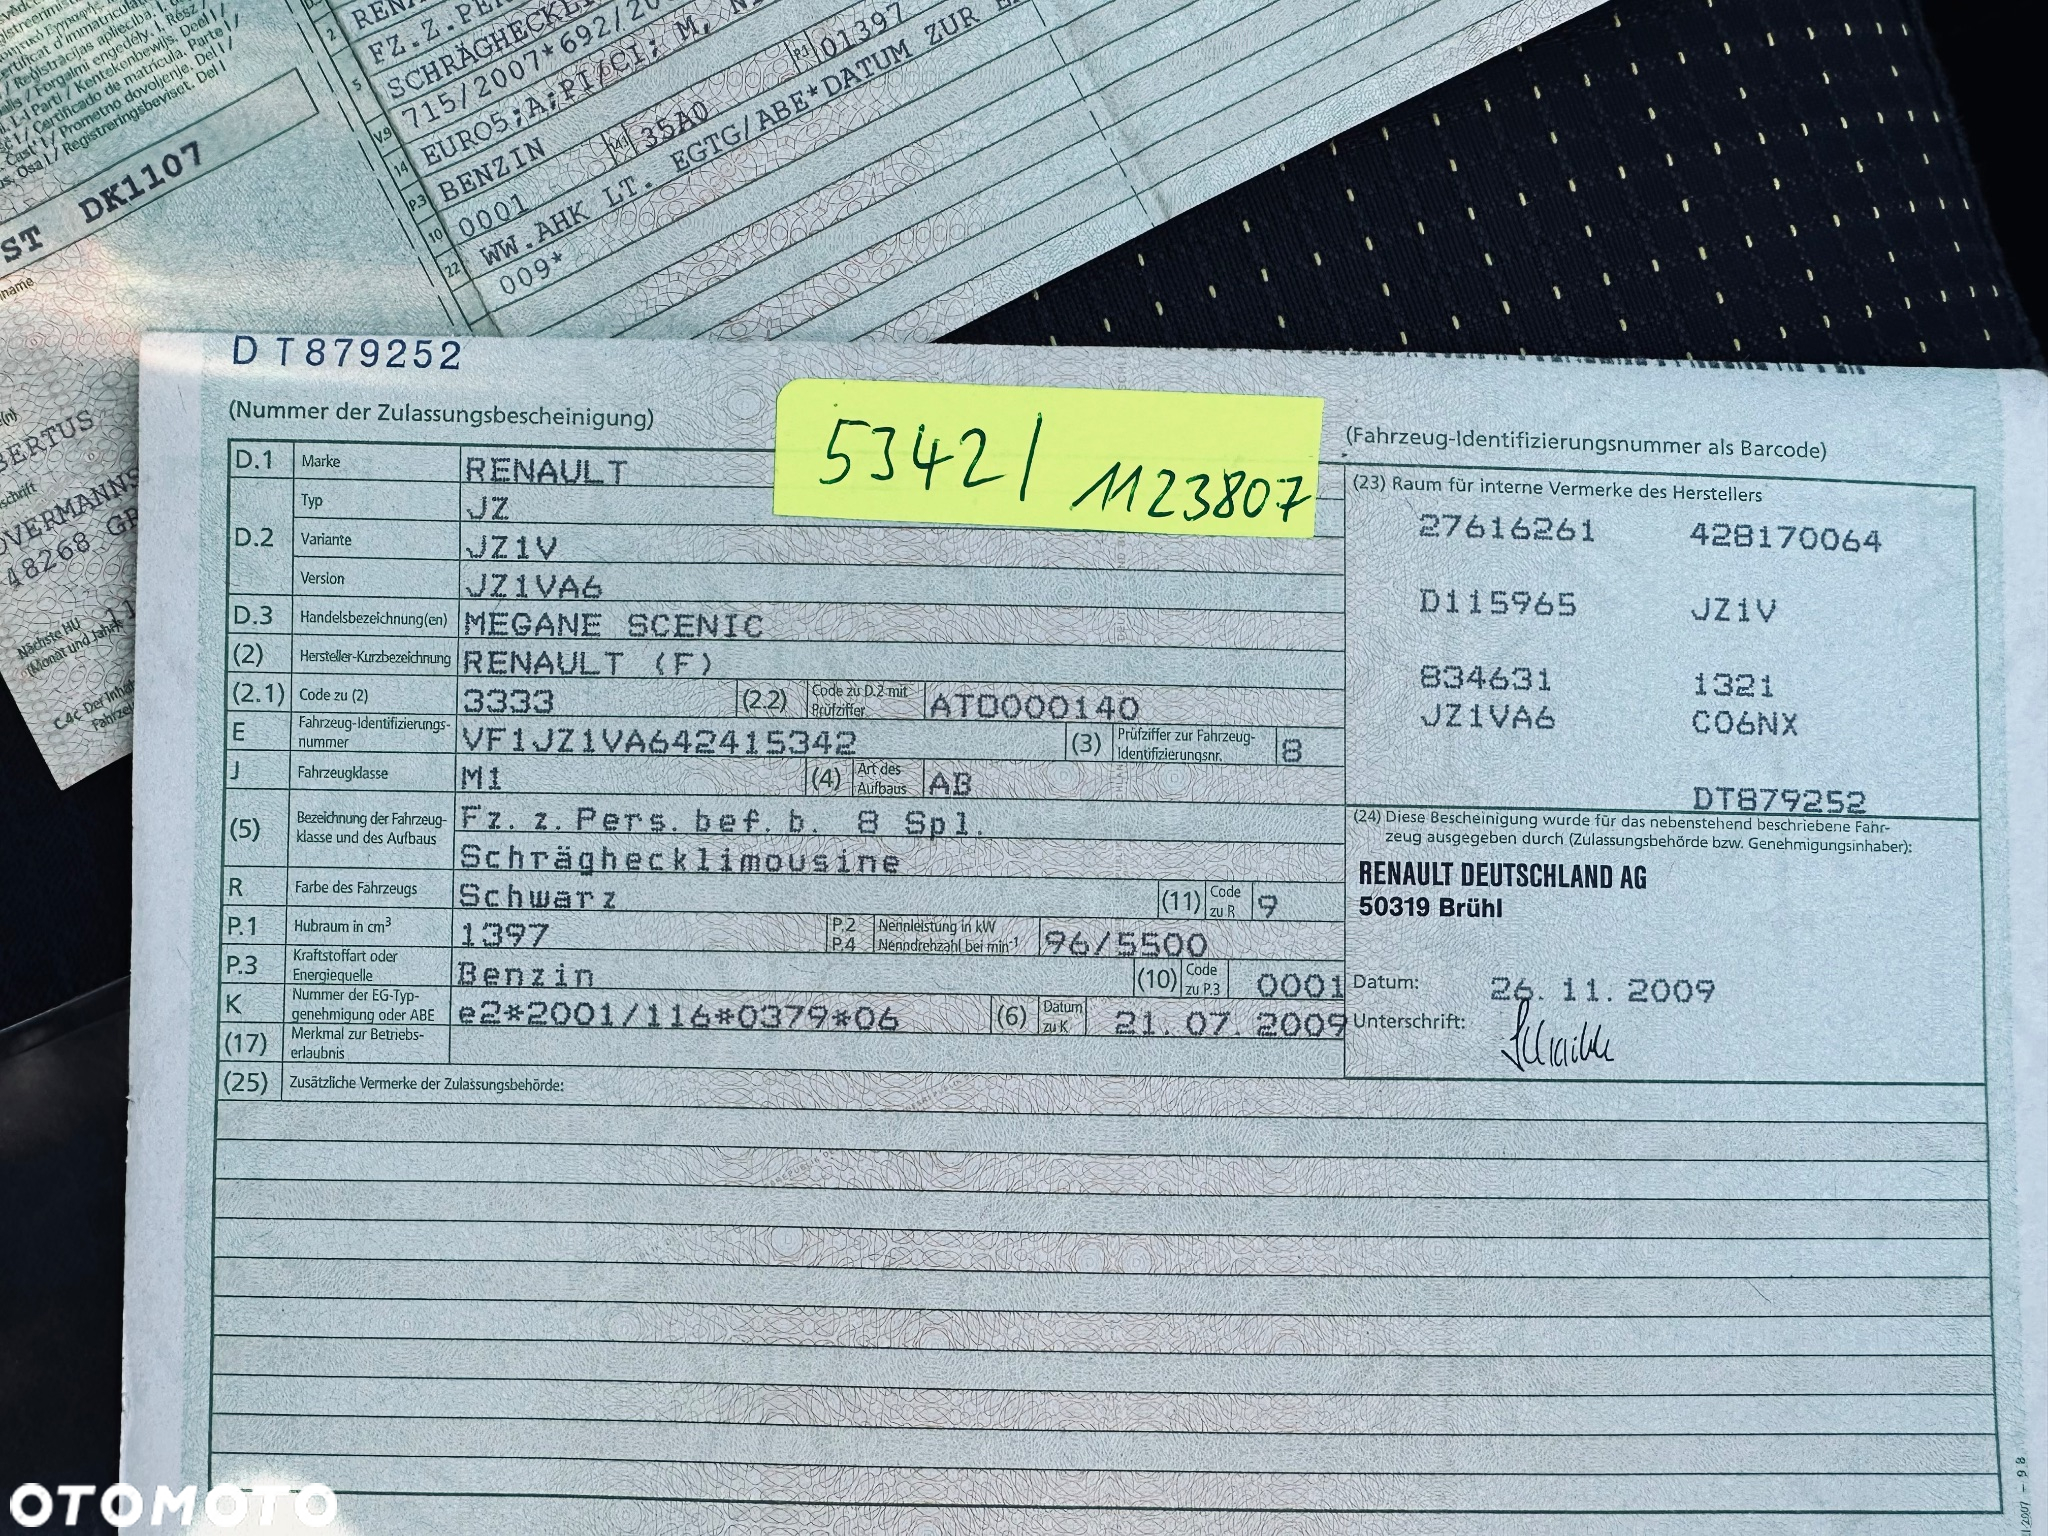 2 RENA
FZ.Z.PE
5 SCHRÄGHECKLI
V9 715/2007*692/20
14 EURO5;A;PI/CI; M, N
P.3 BENZIN 14.1 35A0 P.1 01397
10 0001
22 WW.AHK LT. EGTG/ABE*DATUM ZUR E
009*
ST DK1107
BERTUS
OVERMANNS
48268 GR
Nächste HU
(Monat und Jahr) 11
DT879252
(Nummer der Zulassungsbescheinigung)
5342/ 1123807
(Fahrzeug-Identifizierungsnummer als Barcode)
D.1 Marke RENAULT
D.2 Typ JZ
Variante JZ1V
Version JZ1VA6
D.3 Handelsbezeichnung(en) MEGANE SCENIC
(2) Hersteller-Kurzbezeichnung RENAULT (F)
(2.1) Code zu (2) 3333 (2.2) Code zu D.2 mit Prüfziffer ATD000140
E Fahrzeug-Identifizierungs-nummer VF1JZ1VA642415342 (3) Prüfziffer zur Fahrzeug-Identifizierungsnr. 8
J Fahrzeugklasse M1 (4) Art des Aufbaus AB
(5) Bezeichnung der Fahrzeug-klasse und des Aufbaus Fz.z.Pers.bef.b. 8 Spl.
Schräghecklimousine
R Farbe des Fahrzeugs Schwarz (11) Code zu R 9
P.1 Hubraum in cm³ 1397 P.2 P.4 Nennleistung in kW Nenndrehzahl bei min⁻¹ 96/5500
P.3 Kraftstoffart oder Energiequelle Benzin (10) Code zu P.3 0001
K Nummer der EG-Typ-genehmigung oder ABE e2*2001/116*0379*06 (6) Datum zu K 21.07.2009
(17) Merkmal zur Betriebs-erlaubnis
(25) Zusätzliche Vermerke der Zulassungsbehörde:
(23) Raum für interne Vermerke des Herstellers
27616261 428170064
D115965 JZ1V
834631 1321
JZ1VA6 C06NX
DT879252
(24) Diese Bescheinigung wurde für das nebenstehend beschriebene Fahr-
zeug ausgegeben durch (Zulassungsbehörde bzw. Genehmigungsinhaber):
RENAULT DEUTSCHLAND AG
50319 Brühl
Datum: 26.11.2009
Unterschrift:
OTOMOTO